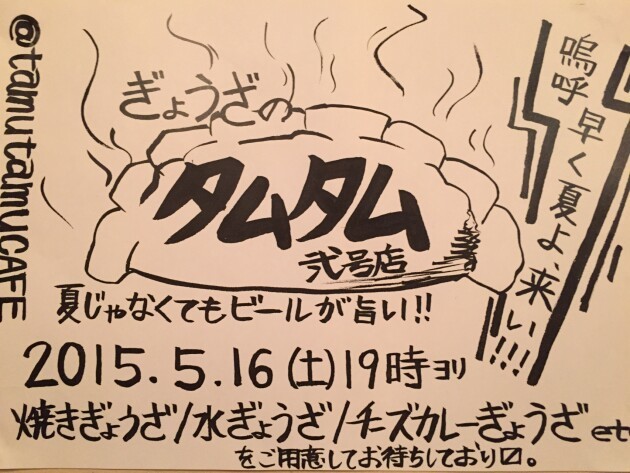 @tamutamuCAFE
ぎょうざの
タムタム
弐号店
嗚呼早く夏よ、来い!!!
夏じゃなくてもビールが旨い!!
2015.5.16(土)19時ヨリ
焼きぎょうざ/水ぎょうざ/チーズカレーぎょうざ etc
をご用意してお待ちしており〼。